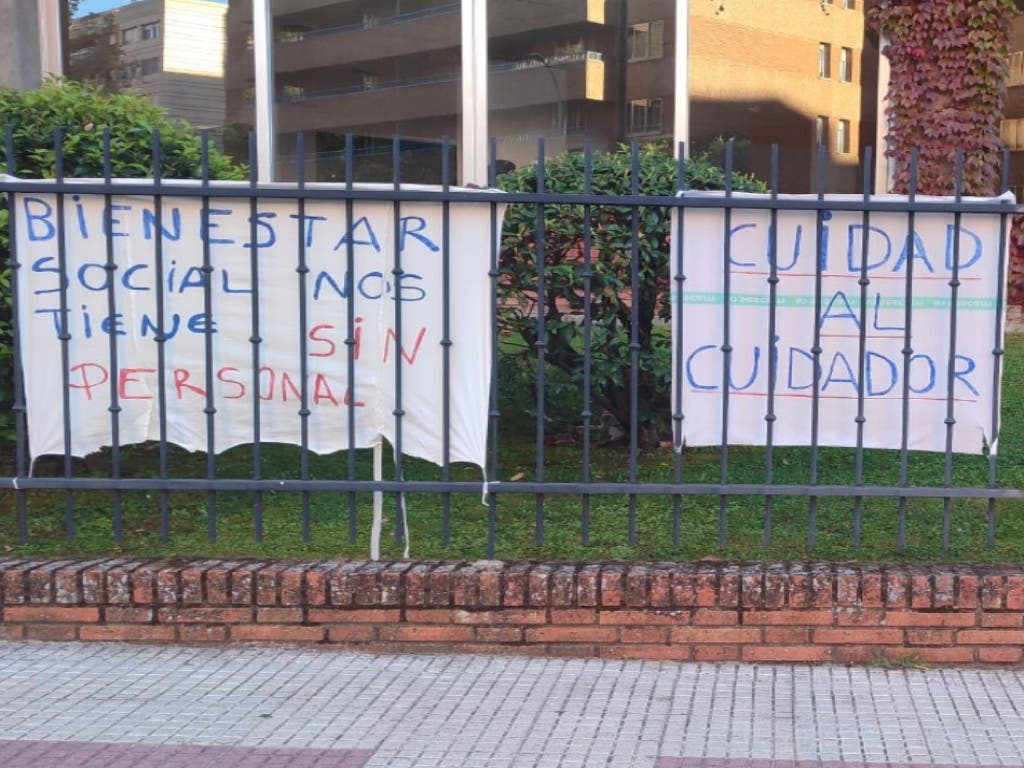 BiENESTAR
SOCiAL NOS
TiENE SiN
PERSONAL
CUiDAD
AL
CUiDADOR